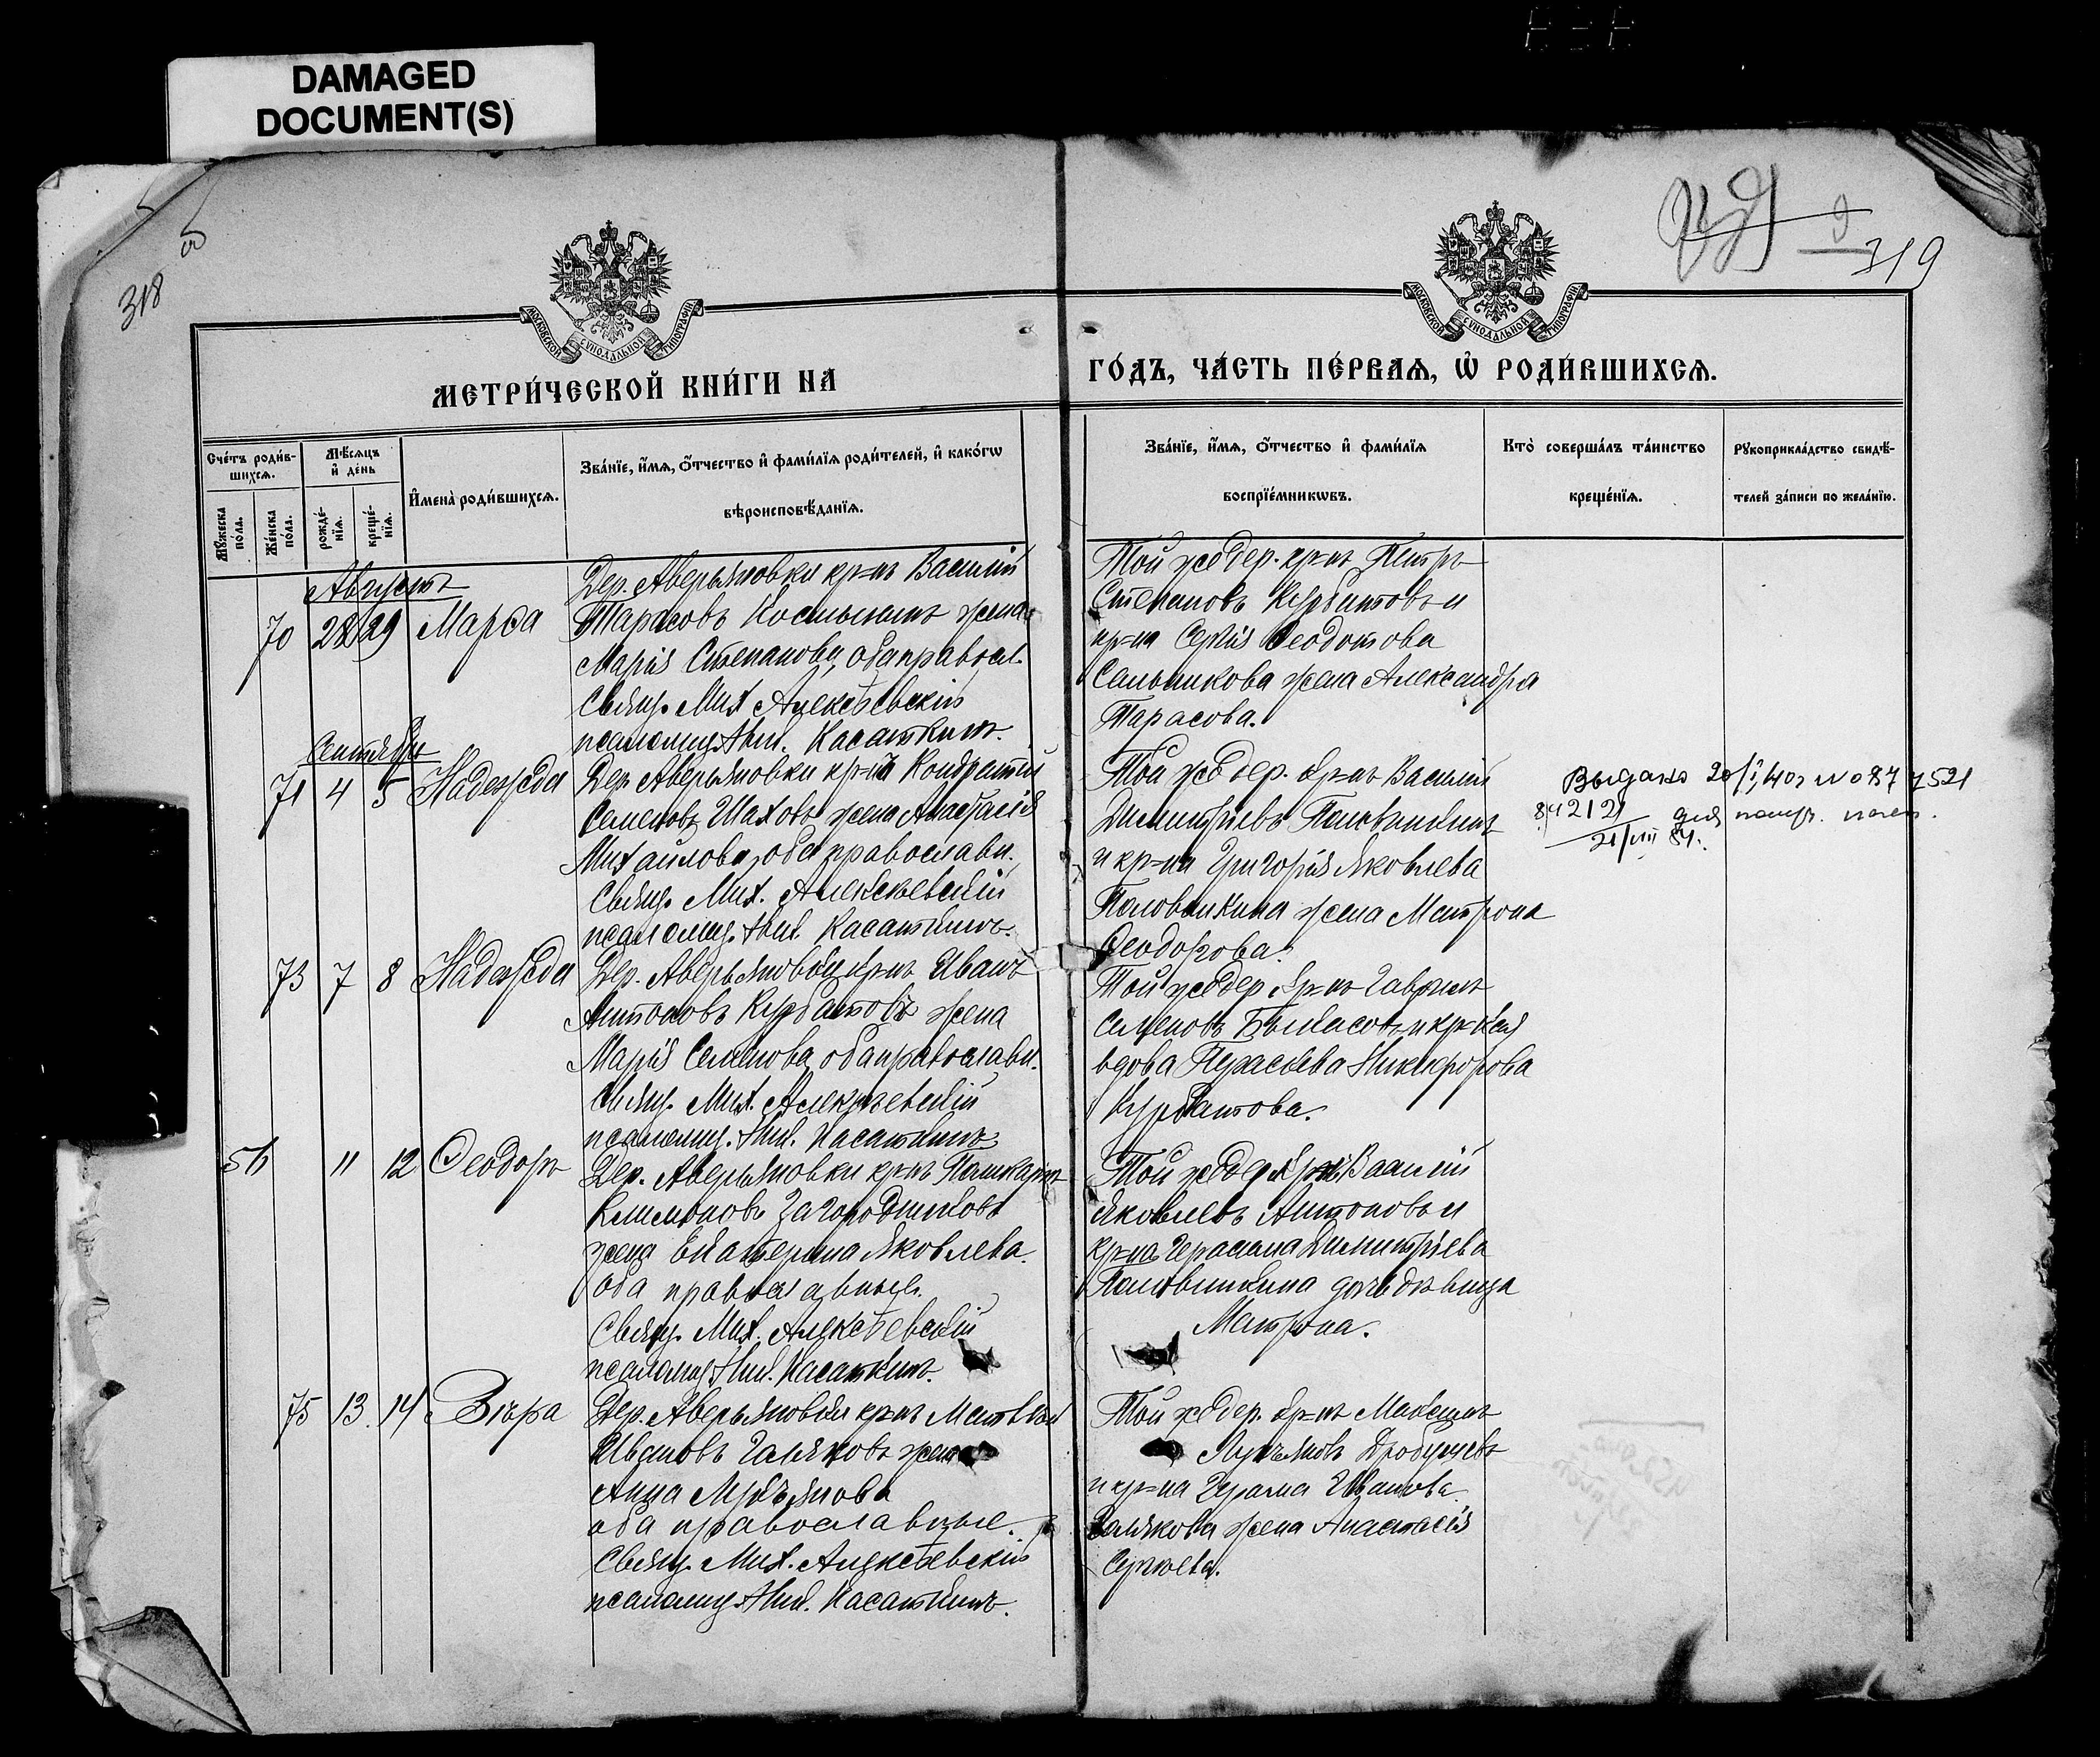 DAMAGED
DOCUMENT(S)
318
319
МОСКОВСКОЙ СѴНОДАЛЬНОЙ ТИПОГРАФІИ
МОСКОВСКОЙ СѴНОДАЛЬНОЙ ТИПОГРАФІИ
МЕТРИ́ЧЕСКОЙ КНИ́ГИ НА
ГО́ДЪ, ЧА́СТЬ ПЕ́РВАЯ, Ѡ҆ РОДИ́ВШИХСЯ.
Сче́тъ роди́в-
шихся.
Мꙋ́жеска
по́ла.
Же́нска
по́ла.
Мѣ́сяцъ
и҆ де́нь
рожде́-
нїя.
креще́-
нїя.
И҆мена̀ роди́вшихся.
Зва́нїе, и҆́мя, ѻ҆́тчество и҆ фами́лїя роди́телей, и҆ како́гѡ
вѣроисповѣ́данїя.
Зва́нїе, и҆́мя, ѻ҆́тчество и҆ фами́лїя
воспрїе́мникѡвъ.
Кто̀ соверша́лъ та́инство
креще́нїя.
Рꙋкоприкла́дство свидѣ́-
телей за́писи по жела́нїю.
Августъ
70 28 29 Марѳа
Дер. Аверьяновки кр=нъ Василій
Тарасовъ жена
Марія Степанова, оба правосл.
Свящ. Мих. Алексѣевскій
псаломщ. Ник. Касаткинъ.
Той же дер. кр=нъ Петръ
Степановъ Курбатовъ и
кр=на Сергія Ѳеодотова
Сальникова жена Александра
Тарасова.
Сентябрь
71 4 5 Надежда
Дер. Аверьяновки кр=нъ Кондратій
Семеновъ Шаховъ жена Анастасія
Михайлова, оба православн.
Свящ. Мих. Алексѣевскій
псаломщ. Ник. Касаткинъ.
Той же дер. кр=нъ Василій
Димитріевъ Половинкинъ
и кр=на Григорія Яковлева
Половинкина жена Матрона
Ѳеодорова.
Выдано
73 7 8 Надежда
Дер. Аверьяновки кр=нъ Иванъ
Антоновъ Курбатовъ жена
Марія Семенова, оба православн.
Свящ. Мих. Алексѣевскій
псаломщ. Ник. Касаткинъ.
Той же дер. кр=нъ Гавріилъ
Семеновъ и кр=ская
вдова Никифорова
Курбатова.
56 11 12 Ѳеодоръ
Дер. Аверьяновки кр=нъ Поликарпъ
Климоновъ Загородниковъ
жена Екатерина Яковлева
оба православные.
Свящ. Мих. Алексѣевскій
псаломщ. Ник. Касаткинъ.
Той же дер. кр=нъ Василій
Яковлевъ Антоновъ и
кр=на Герасима Димитріева
Половинкина дочь дѣвица
Матрона.
75 13 14 Вѣра
Дер. Аверьяновки кр=нъ Матвѣй
Ивановъ жена
Анна
оба православные.
Свящ. Мих. Алексѣевскій
псаломщ. Ник. Касаткинъ.
Той же дер. кр=нъ Максимъ
и кр=на Ивanова
жена Анастасія
Сергѣева.